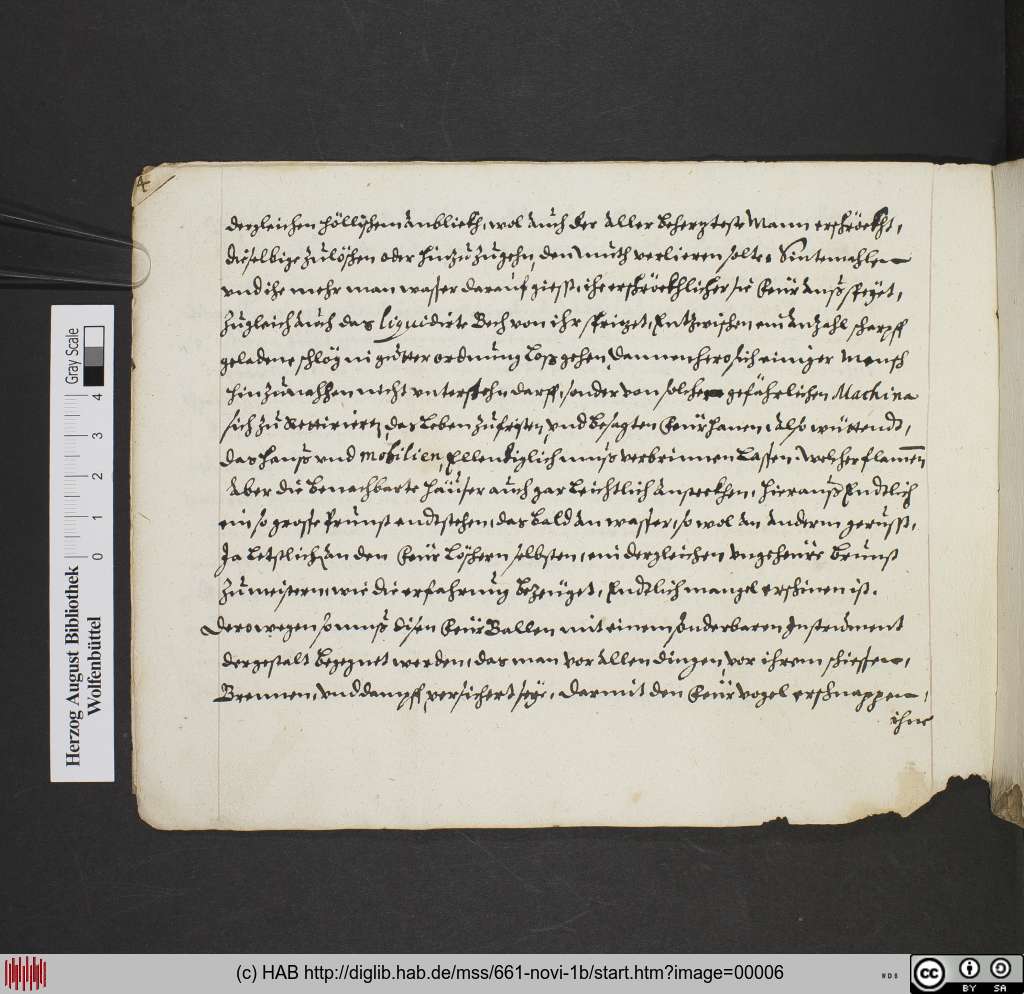 4
dergleichen höllischem anblickh, wol auch der aller beherzteste Mann erschröckht,
dieselbige zulöschen oder hinzuzugehn, den muth verlieren solte. Sintemahlen
vnd ihe mehr man wasser darauf giesst, ihe erschröckhlicher sie Feür aus speyet,
zugleich auch das liquidirte Bech von ihr sprizet, Entzwischen ein anzahl scharpff
geladene schläg in guetter ordnung loss gehen, dannenhero sich einiger Mensch
hinzunahhen nicht vnterstehn darff, sonder von solcher gefährlichen Machina
sich zu Rettirieren, das Leben zufristen, vnd besagten Feürhanen, also wüettendt,
das Hauss vnd mobilien, Ellendiglich muss verbrinnen Lassen. Welcher flamen
aber die benachbarte häuser auch gar leichtlich ansteckhen, hierauss Endtlich
ein so grosse Prunst endtstehen, das bald an wasser, so wol an anderm gerüsst,
Ja letstlich an den Feür Löschern selbsten, ein dergleichen vngeheüre brunst
zumeistern, wie die erfahrung bezeüget, Endtlich mangel erschinen ist.
Derowegen so muss disen Feür Ballen mit einem sonderbaren Instrument
dergestalt begegnet werden, das man vor allen dingen, vor ihrem schiessen,
Brennen, vnd dampff, versichert seye, darmit den Feür vogel erschnappen,
ihne
Herzog August Bibliothek
Wolfenbüttel
0 1 2 3 4
Gray Scale
(c) HAB http://diglib.hab.de/mss/661-novi-1b/start.htm?image=00006
cc BY SA